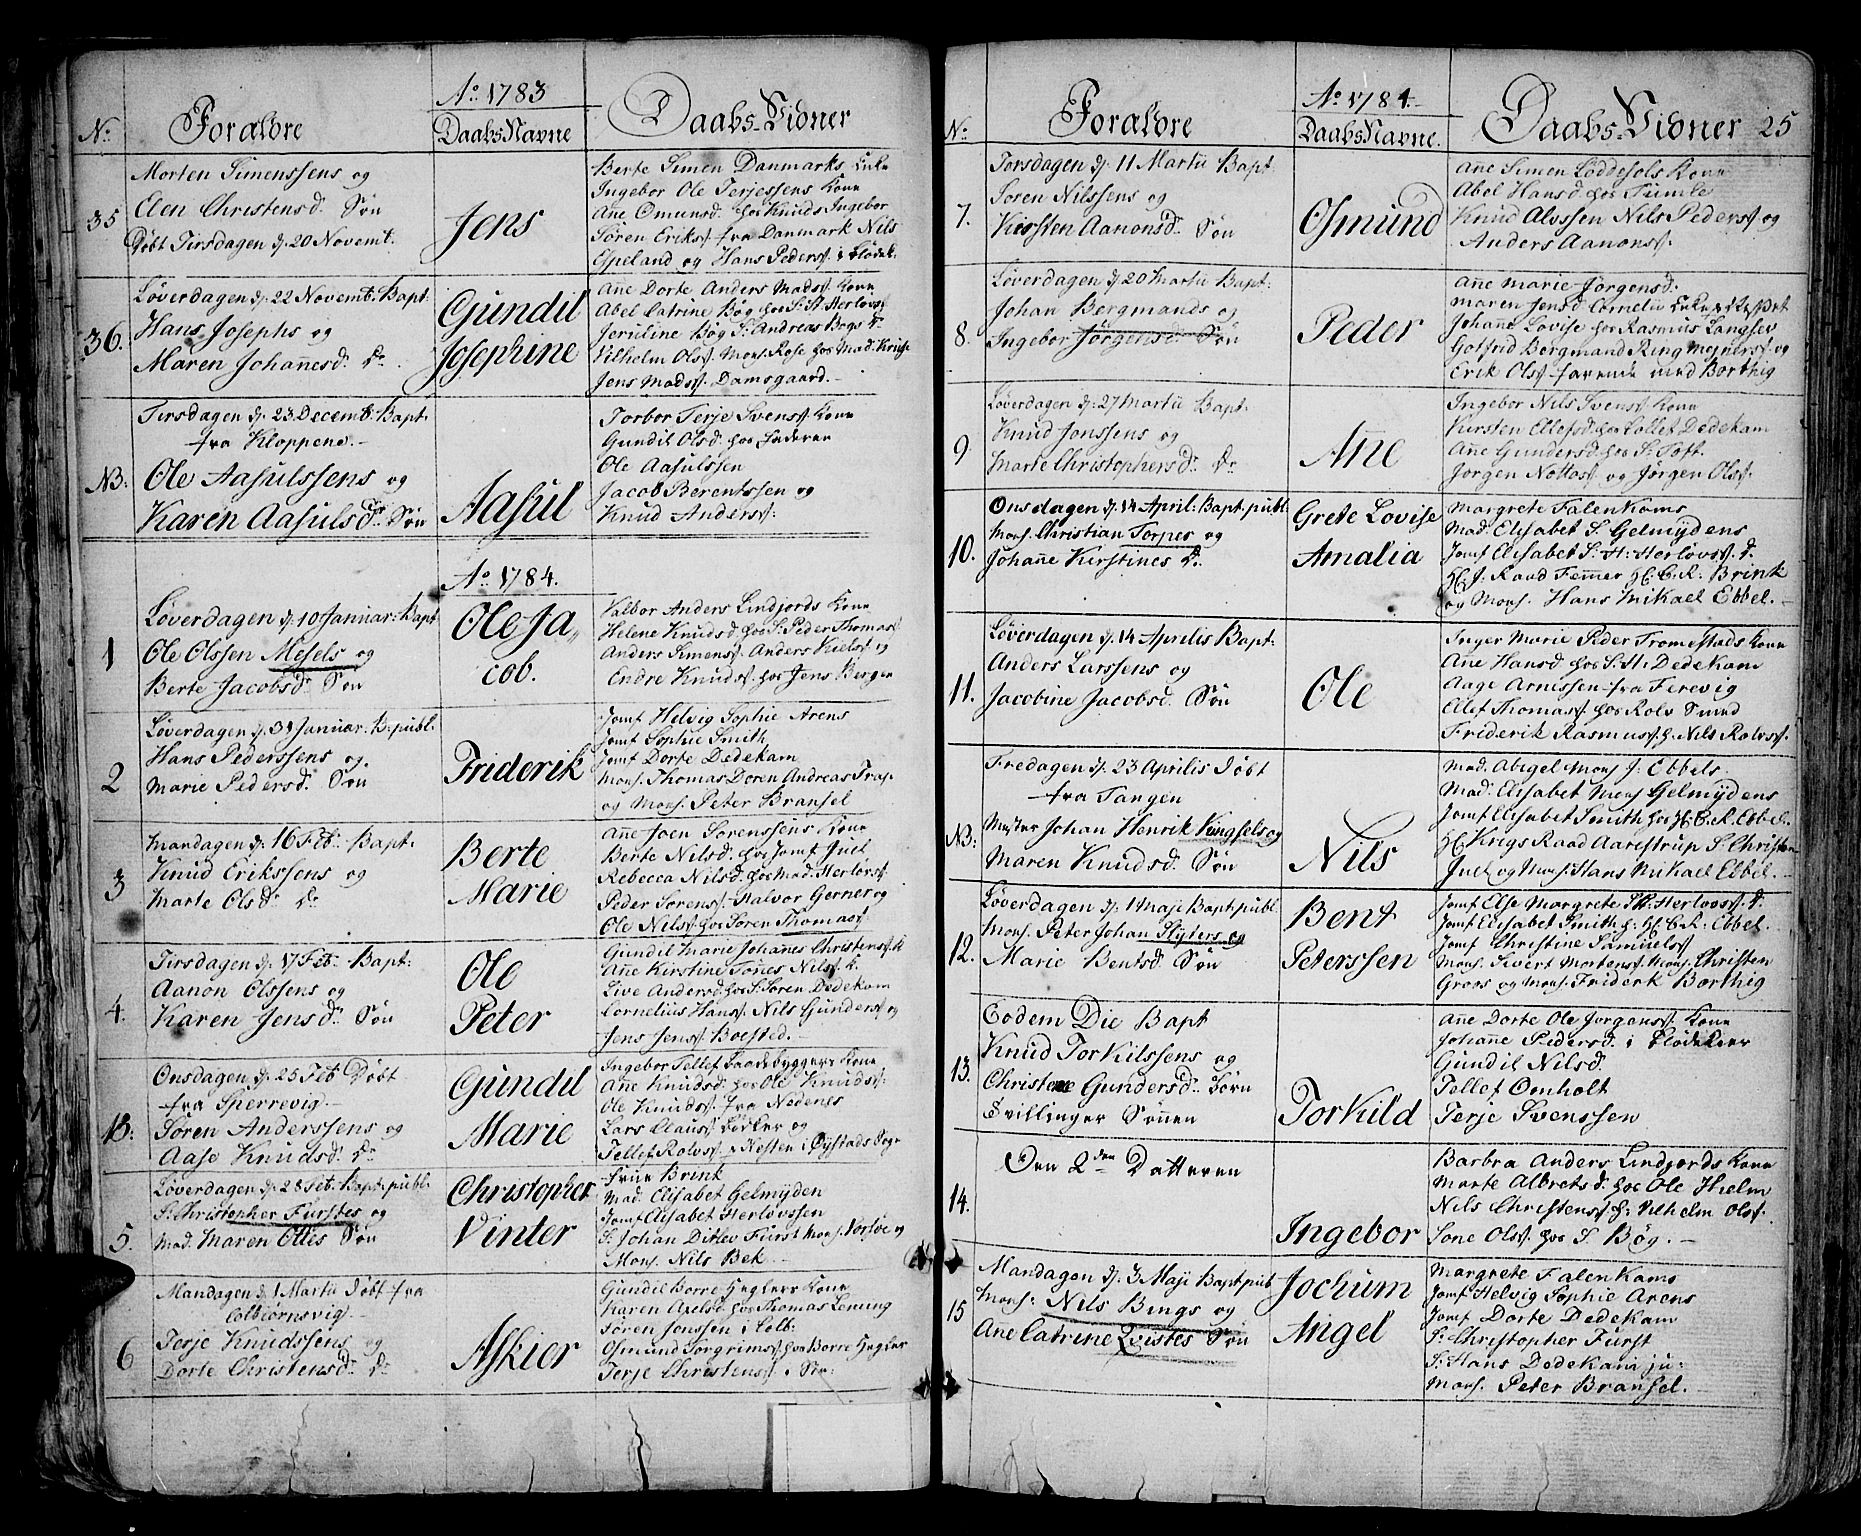 Ao 1783
No Forældre DaabsNavne Daabs-Vidner
35
Morten Simenssens og
Elen Christensd. Søn
Døbt Tirsdagen d. 20 Novemt.
Jens
Berte Simen Danmarks Enke
Ingebor Ole Terjessens Kone
Ane Omunsd. hos Knuds Ingebor
Søren Erikss. fra Danmark Nils
Gpeland og Hans Pederss. i Flødek.
36.
Løverdagen d. 22 Novemt. Bapt:
Hans Josephs og
Maren Johanesd. Dr.
Gundil
Josephine
Ane Dorte Anders Madss. Kone
Abel Catrine Bøg hos S. H. Herlovs
Joruline Bøg S. Andreas Bøgs D.
Vilhelm Olss. Mons. Rose hos Mad. Krise
Jens Madss. Damsgaard.
NB:
Tirsdagen d. 23 Decemb: Bapt:
fra Kloppene.
Ole Aasulssens og
Karen Aasulsdr. Søn
Aasul
Torbor Terje Svenss. Kone
Gundil Olsd. hos Faderen
Ole Aasulssen
Jacob Berentssen og
Knud Anderss.
Ao 1784.
1
Løverdagen d. 10 Januar: Bapt
Ole Olssen Mesels og
Berte Jacobsd. Søn
Ole Ja,,
cob.
Valbor Anders Lindjords Kone
Helene Knudsd. hos S. Peder Thomas
Anders Simenss. Anders Kielss. og
Endre Knudss. hos Jens Bergen
2
Løverdagen d. 31 Januar. B. publ.
Hans Pederssens og.
Marie Pedersd. Søn
Friderik
Jomf Helvig Sophie Arens
Jomf Sophie Smith
Jomf Dorte Dedekam
Mons. Thomas Doren Andreas Trap
og Mons. Peter Bransel
3
Mandagen d. 16 Feb. Bapt.
Knud Erikssens og
Marte Olsdr Dr
Berte
Marie
Ane Joen Sørenssens Kone
Berte Nilsd. hos Jomf Juel
Rebecca Nilsd. hos Mad. Herlovs
Peder Sørenss. Halvor Gerner og
Ole Nilss. hos Søren Thomass.
4.
Tirsdagen d. 17 Feb. Bapt:
Aanon Olssens og
Karen Jensd. Søn
Ole
Peter
Gundil Marie Johanes Christenss. K
Ane Kirstine Tønes Nilss. K.
Live Andersd. hos S. Søren Dedekam
Cornelius Hanss. Nils Gunderss. og
Jens Jenss. Boested.
NB:
Onsdagen d. 25 Feb Døbt
fra Sperrevig.
Søren Anderssens og
Aase Knudsd. Dr
Gundil
Marie
Ingebor Tellef Baadebyggers Kone
Ane Knudsd. hos Ole Knudss.
Ole Knudss. fra Nedenes
Lars Clauss. Fedler og
Tellef Rolvss. Nesten i Øystads Sogn
5.
Løverdagen d. 28 Feb. Bapt. publ.
S. Christopher Fürstes og
Mad. Maren Ottes Søn
Christopher
Vinter
Frue Brink
Mad. Elisabet Gelmÿden
Jomf Elisabet Herlovssen
S. Johan Ditlev Fürst Mons. Norsøe og
Mons. Nils Bek
6
Mandagen d. 1 Martii Døbt fra
Colbiørnsvig.
Terje Knudssens og
Dorte Christensd. Dr
Askier
Gundil Borre Heglers Kone
Karen Axelsd. hos Thomas Lening
Søren Jonssen i Colb:
Osmund Torgrimss. hos Borre Hegler
Terje Christenss. i
Ao 1784.
25
No Forældre DaabsNavne. Daabs-Vidner
7.
Torsdagen d. 11 Martii Bapt:
Søren Nilssens og
Kirsten Aanonsd. Søn
Osmund
Ane Simen Løddesols Kone
Abel Hansd. hos Tumle
Knud Alvssen Nils Pederss. og
Anders Aanonss.
8.
Løverdagen d. 20 Martii Bapt:
Johan Bergmands og
Ingebor Jørgensd. Søn
Peder
Ane Marie Jørgensd.
Maren Jensd. Cornelii Enke
Johane Lovise hos Rasmus Langsev
Gotfrid Bergmand Ring Mejnerss. og
Erik Olss. farende med Borthig
9
Løverdagen d. 27 Martii Bapt:
Knud Jonssens og
Marte Christophersd. Dr
Ane
Ingebor Nils Svenss. Kone
Kirsten Ellefsd. hos Tollef Dedekam
Ane Gundersd. hos S. Toft.
Jørgen Nottos. og Jørgen Olss.
10.
Onsdagen d. 14 April. Bapt. publ.
Mons. Christian Torpes og
Johane Kirstines Dr.
Grete Lovise
Amalia
Margrete Falenkams
Mad. Elisabet S. Gelmÿdens
Jomf Elisabet S. H. Herlovss. D.
Hr. J. Raad Femmer Hr. C. R. Brink
og Mons. Hans Mikael Ebbel.
11.
Løverdagen d. 14 Aprilis Bapt:
Anders Larssens og
Jacobine Jacobsd. Søn
Ole
Inger Marie Peder Tromestads Kone
Ane Hansd. hos S. H. Dedekam
Aage Arnessen fra Ferevig
Ellef Thomass. hos Rolv Smed
Friderik Rasmuss. h. Nils Rolvss.
NB:
Fredagen d. 23 Aprilis døbt
fra Tangen
Mester Johan Henrik Kingsels og
Maren Knudsd. Søn
Nils
Mad. Abigel Mons J. Ebbels
Mad: Elisabet Mons Gelmÿdens
Jomf Elisabet Smith hos Hr. C. R. Ebbel.
Hr. Krigs Raad Aarestrup S. Christen
Juel og Mons. Hans Mikael Ebbel.
12.
Løverdagen d. 1 Maji Bapt. publ.
Mons. Peter Johan Slÿters og
Marie Bentsd. Søn
Bent
Peterssen
Jomf Else Margrete S. H. Herlovss. D.
Jomf Elisabet Smith h: Hr. C. R. Ebbel.
Jomf Christine Samuelss.
Mons. Sivert Mortenss. Mons. Christen
Groos og Mons. Friderik Borthig
13.
Eodem Die Bapt
Knud Torkilssens og
Christene Gundersd. Børn
Tvillinger Sønen
Torkild
Ane Dorte Ole Jørgenss. Kone
Johane Pedersd. i Flødekier
Gundil Nilsd.
Tellef Omholt
Terje Svenssen
14.
Den 2den Datteren
Ingebor
Barbra Anders Lindjords Kone
Marte Albretsd. hos Ole Hielm
Nils Christenss. h: Vilhelm Olss.
Sone Olss. hos S. Bøg.
15
Mandagen d. 3 Maji Bapt. publ
Mons. Nils Bings og
Ane Catrine Qvistes Søn
Jochum
Angel
Margrete Falenkams
Jomf Helvig Sophie Arens
Jomf Dorte Dedekam
S. Christopher Fürst
S. Hans Dedekam ju:
Mons. Peter Bransel.